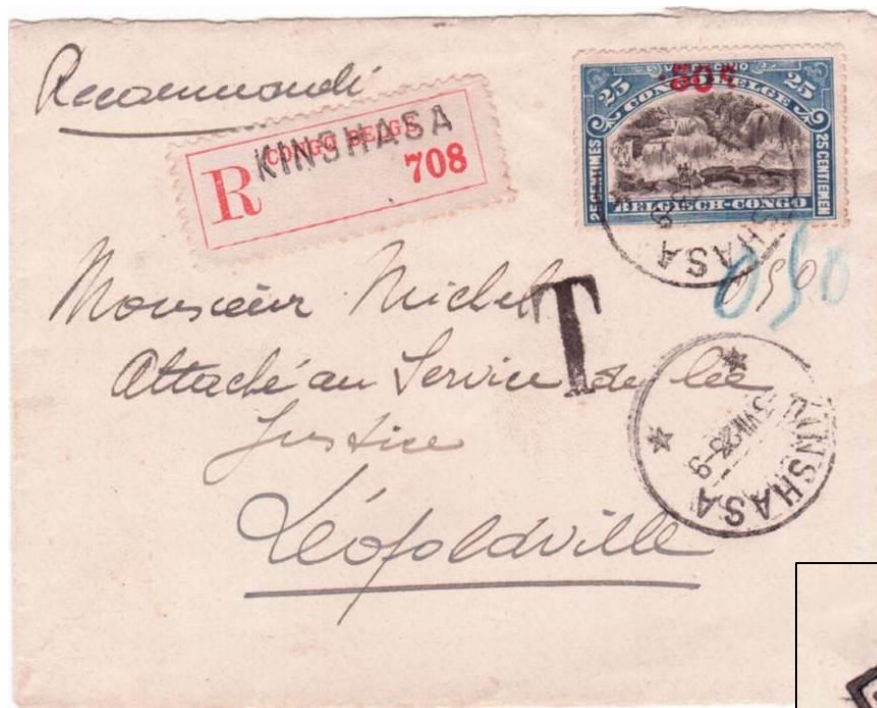 Recommandé
CONGO BELGE
KINSHASA
R 708
25 25
CONGO BELGE
25 CENTIMES
25 CENTIEMEN
BELGISCH-CONGO
50c.
KINSHASA
0,50
0,50
Monsieur Michel
T
Attaché au Service de la
Justice
Léopoldville
KINSHASA